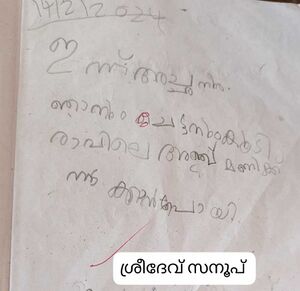 14/2/2024
ഇ
ന്ന് അച്ഛനും
ഞാനും ചേട്ടനുംകൂടി
രാവിലെ അഞ്ച് മണിക്ക്
പോയി
ശ്രീദേവ് സനൂപ്